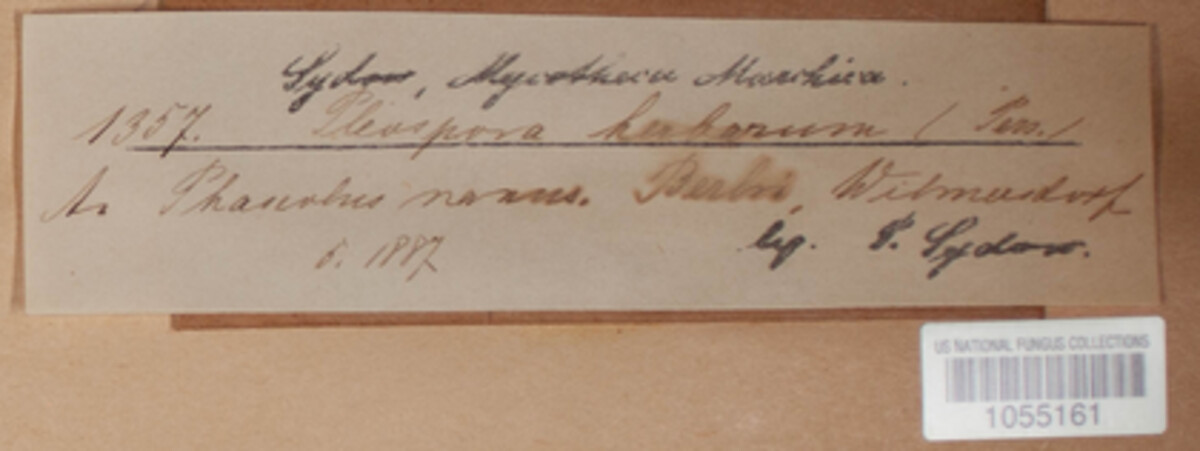 Sydow, Mycotheca Marchica.
1357. Pleospora herbarum (Pers.)
A. Phaseolus nanus. Berlin, Wilmersdorf
6. 1887
leg. P. Sydow.
US NATIONAL FUNGUS COLLECTIONS
1055161